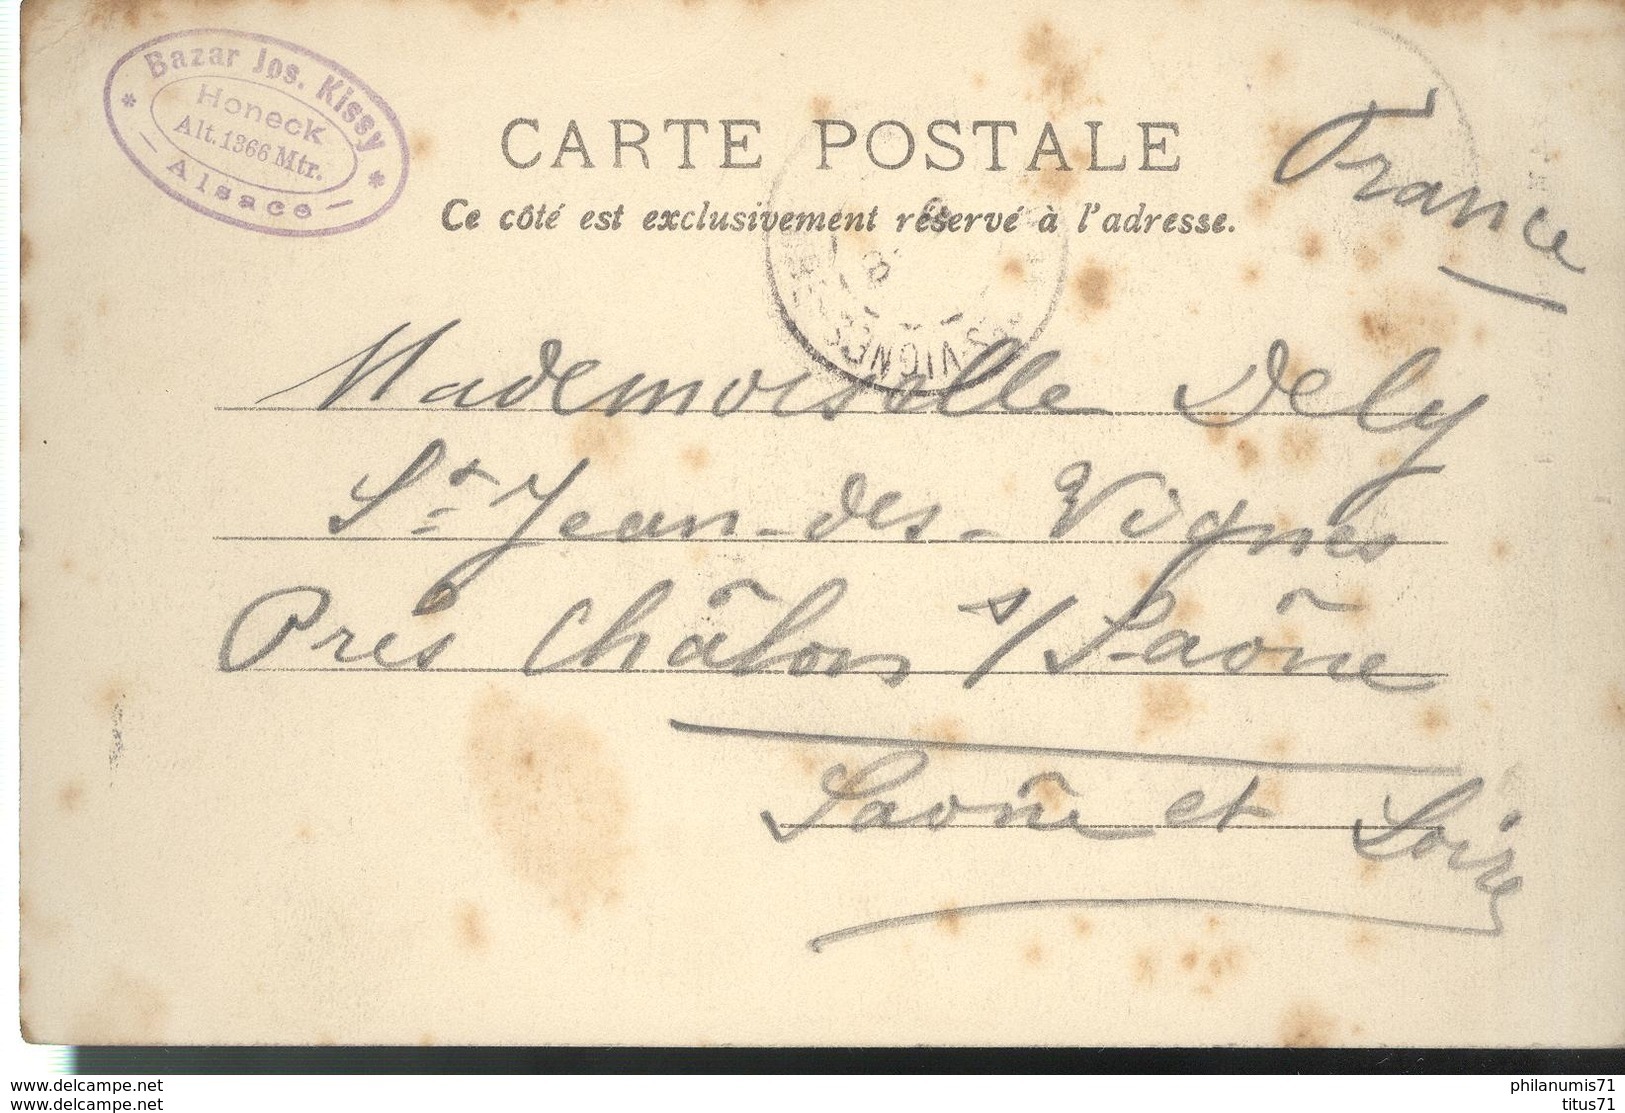 * Bazar Jos. Kissy *
Honeck
Alt. 1366 Mtr.
- Alsace -
CARTE POSTALE
Ce côté est exclusivement réservé à l'adresse.
France
VIGNES
Mademoiselle Dely
St Jean-des-Vignes
Près Châlons s/Saône
Saône et Loire
www.delcampe.net
www.delcampe.net
philanumis71
titus71